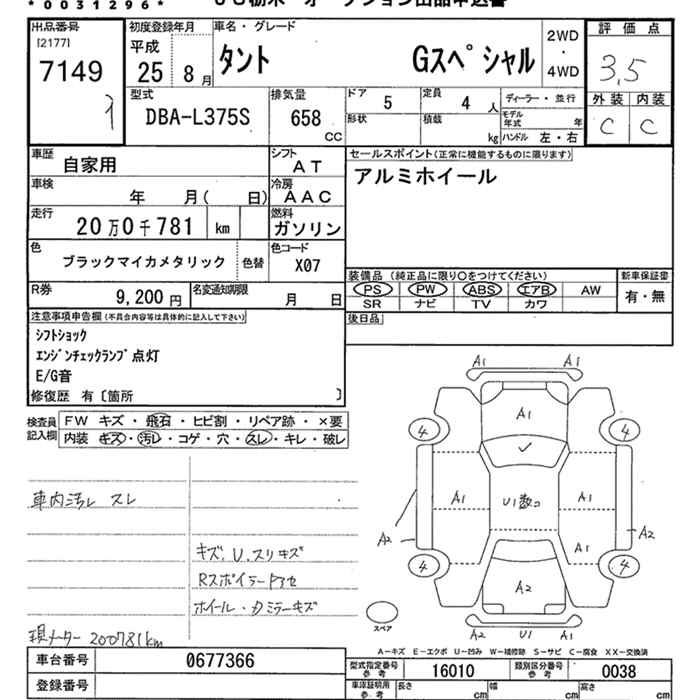 * 0031296 *
出品番号 初度登録年月 車名・グレード 2WD ・ 4WD 評価点
[2177]
7149 平成 25年 8月 タント Gスペシャル 3.5
型式 DBA-L375S 排気量 658 CC
ドア 5 定員 4 人 ディーラー・並行
形状 積載 kg モデル年式 年 ハンドル 左・右
外装 内装
C C
車歴 自家用 シフト AT
車検 年 月( 日) 冷房 AAC
走行 20万0千781 km 燃料 ガソリン
色 ブラックマイカメタリック 色替 色コード X07
R券 9,200円 名変通知期限 月 日
セールスポイント(正常に機能するものに限ります)
アルミホイール
装備品 (純正品に限り○をつけてください) 新車保証書
PS PW ABS エアB AW 有・無
SR ナビ TV カワ
後日品
注意事項申告欄(不具合内容等は具体的に記入して下さい)
シフトショック
エンジンチェックランプ点灯
E/G音
修復歴 有〔箇所 〕
検査員記入欄 FW キズ・飛石・ヒビ割・リペア跡・×要
内装 キズ・汚レ・コゲ・穴・スレ・キレ・破レ
車内汚レ スレ
キズ、U、スリキズ
Rスポイラー
ホイール・ドアミラーキズ
現メーター 200781km
A1 A1
A1
4 4
A1 U1数コ A1
A2 A1 A2
4 4
A2
スペア A2 U1 A1
A-キズ E-エクボ U-凹み W-補修跡 S-サビ C-腐食 XX-交換済
車台番号 0677366
登録番号
型式指定番号 参考 16010 類別区分番号 参考 0038
車庫証明用 参考 長さ cm 幅 cm 高さ cm